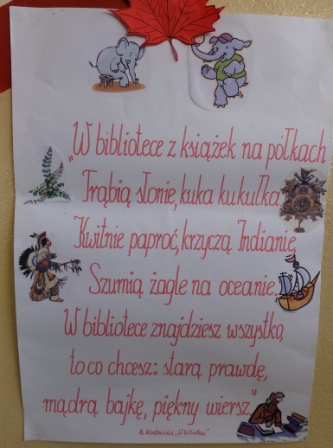 „W bibliotece z książek na półkach
Trąbią słonie, kuka kukułka,
Kwitnie paproć, krzyczą Indianie,
Szumią żagle na oceanie.
W bibliotece znajdziesz wszystko,
to co chcesz: starą prawdę,
mądrą bajkę, piękny wiersz."